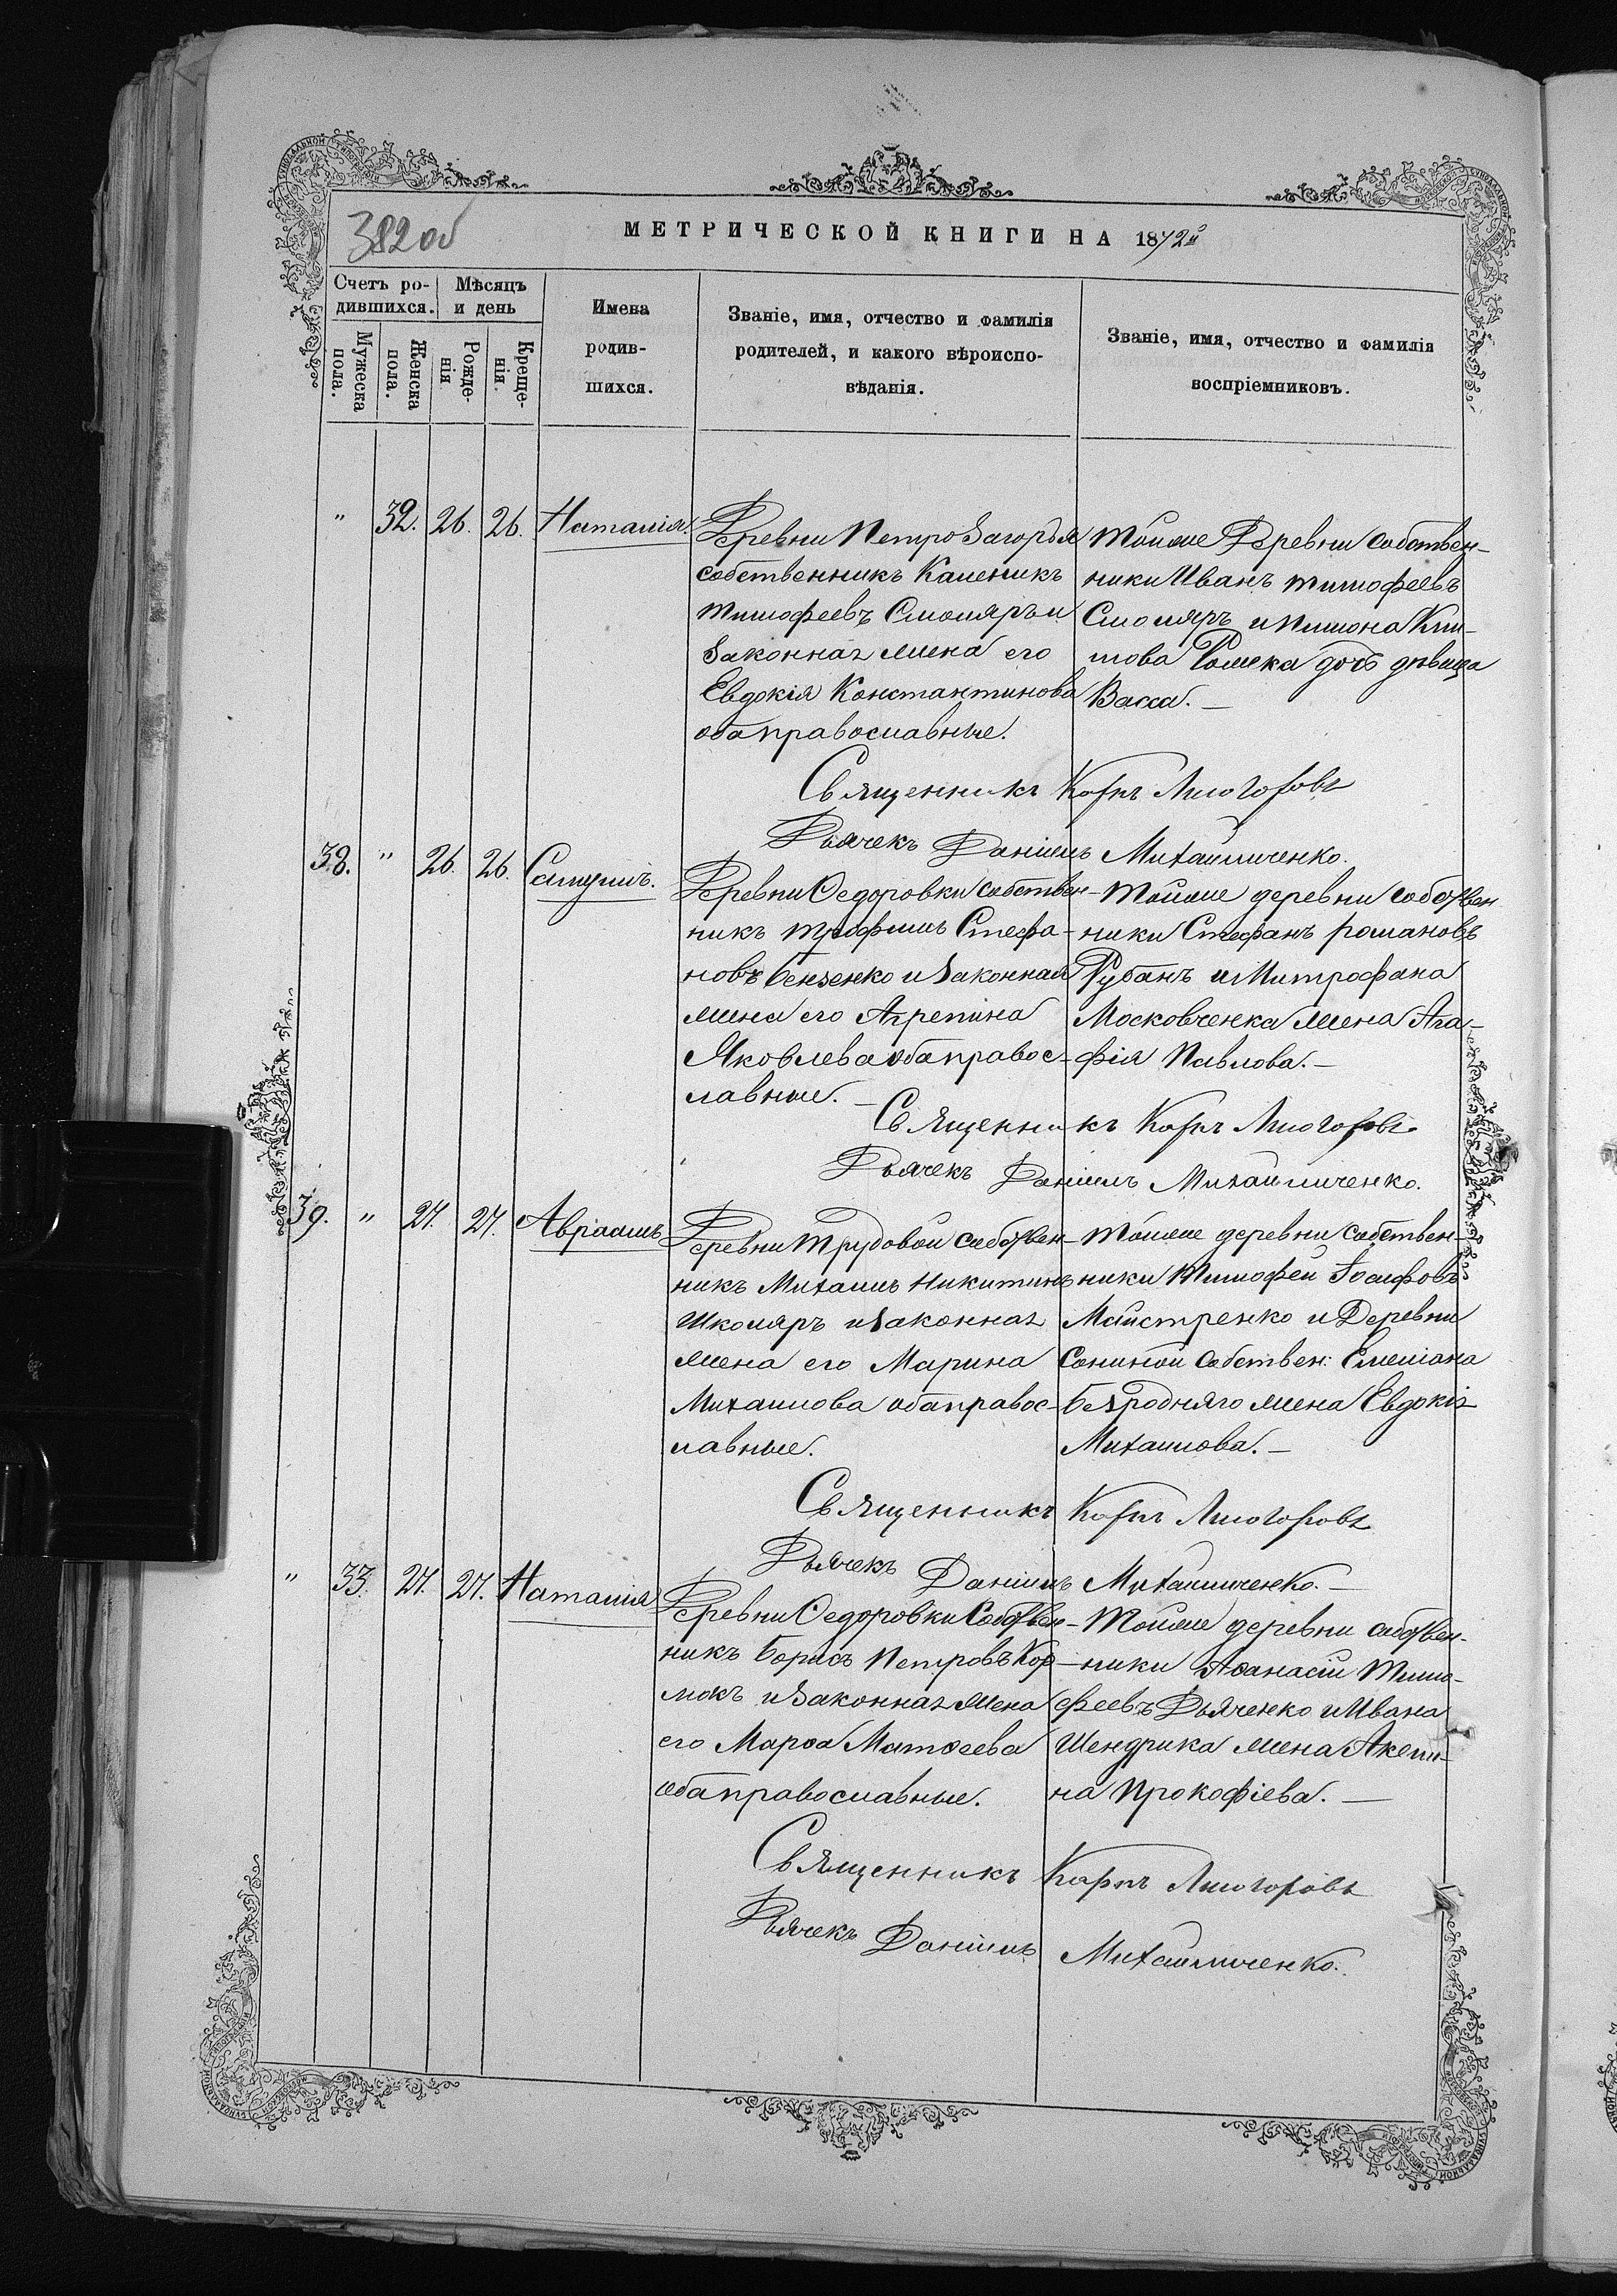 382 об
МЕТРИЧЕСКОЙ КНИГИ НА 1872й
Счетъ ро-
дившихся.
Мѣсяцъ
и день
Мужеска
пола.
Женска
пола.
Рожде-
нія.
Креще-
нія.
Имена
родив-
шихся.
Званіе, имя, отчество и фамилія
родителей, и какого вѣроиспо-
вѣданія.
Званіе, имя, отчество и фамилія
воспріемниковъ.
" 32. 26. 26. Наталія.
Деревни ПетроЗагорья
собственникъ Каленикъ
Тимофеевъ Смоляръ и
Законная жена его
Евдокія Константинова
оба православные.
Тойже Деревни собствен-
ники Иванъ Тимофеевъ
Смоляръ и
дочь дѣвица
Васса. –
Священникъ Карпъ Лисогоровъ
Дьячекъ Даніилъ Михайличенко.
38. " 26. 26. Самуилъ.
Деревни Ѳедоровки собствен-
никъ Трофимъ Стефа-
новъ Бензенко и Законная
жена его Агрепина
Яковлева оба правос-
лавные. –
Тойже деревни собствен
ники Стефанъ романовъ
Рубанъ и Митрофана
Московченка жена Ага-
фія Павлова. –
Священникъ Карпъ Лисогоровъ
Дьячекъ Даніилъ Михайличенко.
39. " 27. 27. Авраамъ
Деревни Трудовой собствен-
никъ Михаилъ Никитинъ
Школяръ и Законная
жена его Марина
Михаилова оба правос-
лавные.
Тойже деревни собствен-
ники Тимофей Іосифовъ
Майстренко и Деревни
Сониной собствен: Емеліана
Безродняго жена Евдокія
Михаилова. –
Священникъ Карпъ Лисогоровъ
Дьячекъ Даніилъ Михайличенко. –
" 33. 27. 27. Наталія
Деревни Ѳедоровки Собствен-
никъ Борисъ Петровъ Кор-
мокъ и Законная жена
его Марѳа Матѳеева
оба православные.
Тойже деревни собствен-
ники Аѳанасій Тимо-
феевъ Дьяченко и Ивана
Шендрика жена Акели-
на Прокофіева. –
Священникъ Карпъ Лисогоровъ
Дьячекъ Даніилъ Михайличенко.